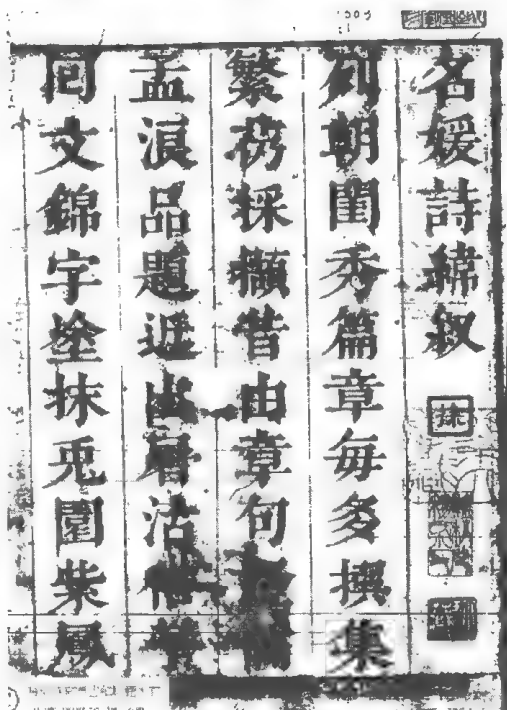 名媛詩緯叙
列朝閨秀篇章每多撰集
繁蕪採擷昔由章句
孟浪品題近出層沽
囘文錦字塗抹兎園紫鳳